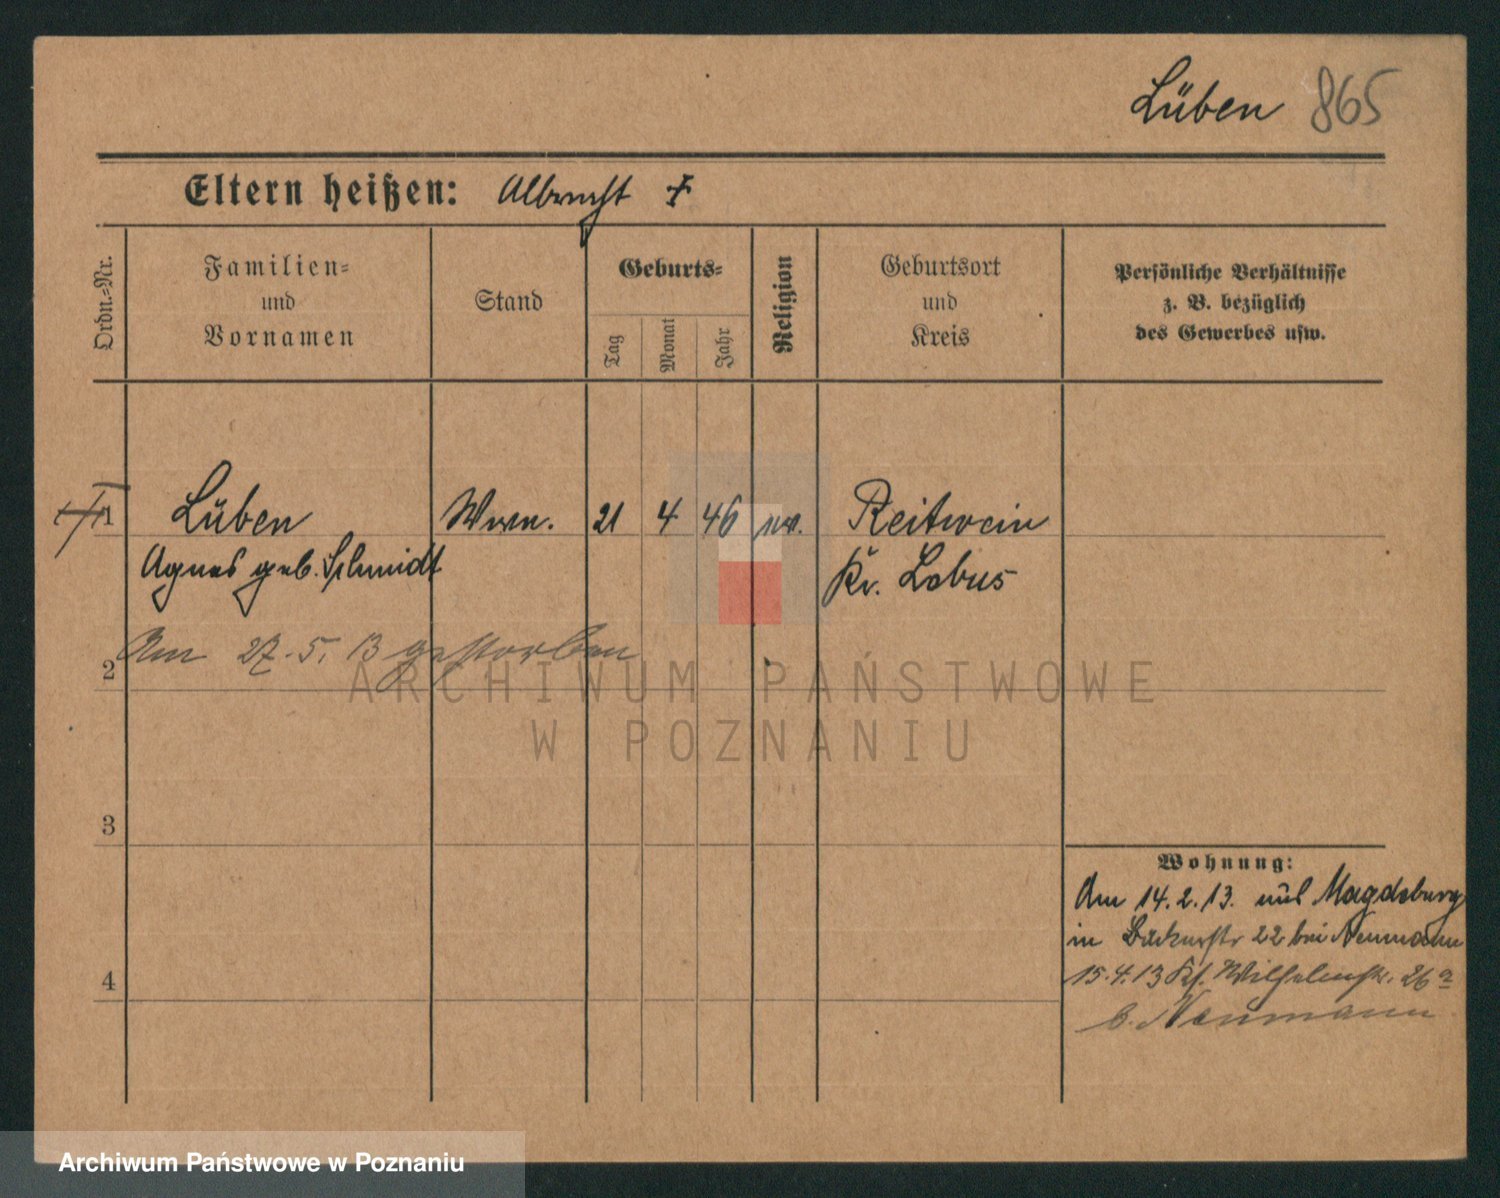 Lüben 865
Eltern heißen: Albrecht †
Ordn.-Nr.
Familien-
und
Vornamen
Stand
Geburts-
Tag
Monat
Jahr
Religion
Geburtsort
und
Kreis
Persönliche Verhältnisse
z. B. bezüglich
des Gewerbes usw.
1 Lüben Wwe. 21 4 46 ev. Reitwein
Agnes geb. Schmidt Kr. Lebus
Am 27. 5. 13 gestorben
2
ARCHIWUM PAŃSTWOWE
W POZNANIU
3
Wohnung:
Am 14. 2. 13. aus Magdeburg
in Bäckerstr 22 bei Neumann
4
15. 4. 13 Wilhelmstr. 26a
b. Neumann
Archiwum Państwowe w Poznaniu